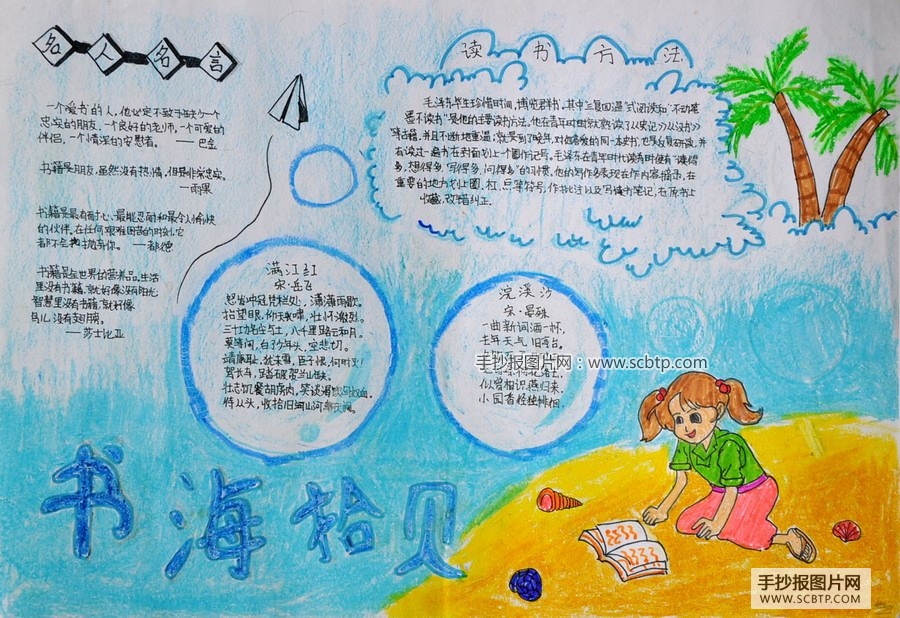 名人名言
一个爱书的人，他必定不致于缺少一个
忠实的朋友，一个良好的老师，一个可爱的
伴侣，一个情深的安慰者。 ——巴金
书籍是朋友，虽然没有热情，但是非常忠实。
——雨果
书籍是最有耐心、最能忍耐和最令人愉快
的伙伴。在任何艰难困苦的时刻，它
都不会抛弃你。 ——都德
书籍是全世界的营养品。生活
里没有书籍，就好像没有阳光；
智慧里没有书籍，就好像
鸟儿没有翅膀。
——莎士比亚
读书方法
毛泽东毕生珍惜时间，博览群书。其中三复四温式阅读和"不动笔
墨不读书"是他的主要读书方法。他在青年时时就熟读了《史记》《汉书》
等古籍，并且不断地重温；就是到了晚年，对他喜爱的同一本书，也是反复研读，并
有读过一遍书在封面划上一个圈作记号。毛泽东在青年时代读书时便有"读得
多，想得多，写得多，问得多"的习惯，他的写作多表现在作内容摘录，在
重要的地方划上圈、杠、点等符号，作批讨以及写读书笔记，在原书上
改错纠正。
满江红
宋·岳飞
怒发冲冠凭栏处，潇潇雨歇。
抬望眼，仰天长啸，壮怀激烈。
三十功名尘与土，八千里路云和月。
莫等闲，白了少年头，空悲切。
靖康耻，犹未雪，臣子恨，何时灭！
驾长车，踏破贺兰山缺。
壮志饥餐胡虏肉，笑谈渴饮匈奴血。
待从头，收拾旧河山河，朝天阙。
浣溪沙
宋·晏殊
一曲新词酒一杯，
去年天气旧亭台。
手抄报图片网：www.scbtp.com
似曾相识燕归来，
小园香径独徘徊。
书海拾贝
手抄报图片网
WWW.SCBTP.COM